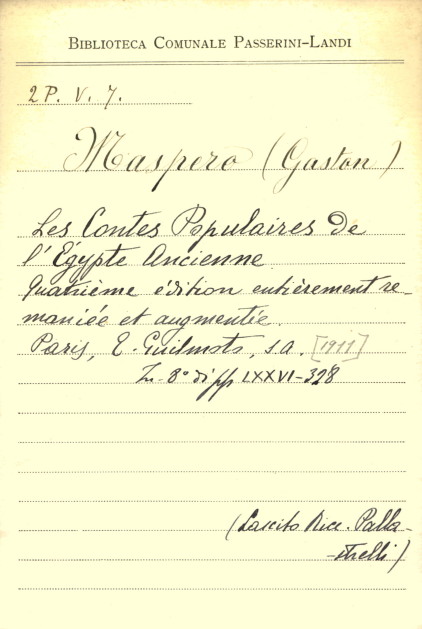 BIBLIOTECA COMUNALE PASSERINI-LANDI
2 P. V. 7.
Maspero (Gaston)
Les Contes Populaires de
l'Égypte Ancienne
Quatrième édition entièrement re-
maniée et augmentée.
Paris, E. Guilmoto, s.a. [1911]
In-8° di pp LXXVI-328
(Lascito Ricc. Palla-
-strelli)